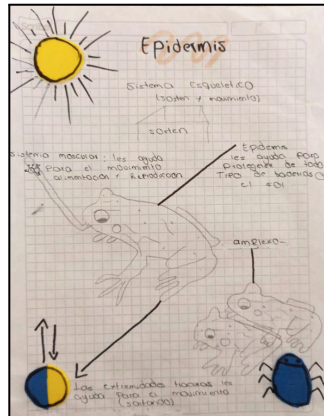 Epidermis
Sistema Esqueletico
(sosten y movimiento)
sosten
Sistema moscular: les ayuda
Para el movimiento
alimentación y Reproducción
Epidermis
les ayuda para
Protegerse de todo
Tipo de bacterias o
el sol
amplexo-
Las extremidades traceras les
ayuda Para el movimiento
(saltando)